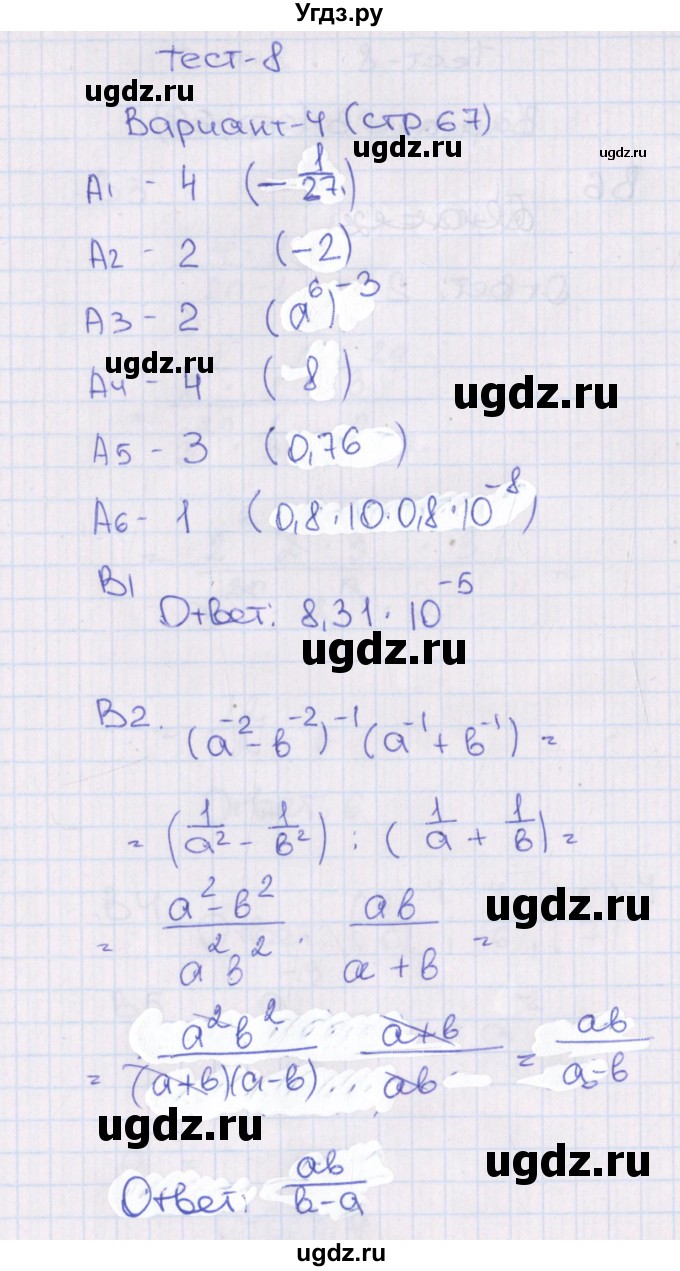 Угдз.ру
Тест-8
ugdz.ru
Вариант-4 (стр.67)
ugdz.ru
ugdz.ru
А1 - 4 (-1/27)
А2 - 2 (-2)
А3 - 2 (a⁶)⁻³
ugdz.ru
А4 - 4 (-8)
ugdz.ru
А5 - 3 (0,76)
А6 - 1 (0,8·10·0,8·10⁻⁸)
В1
Ответ: 8,31·10⁻⁵
ugdz.ru
В2. (a⁻²-в⁻²)⁻¹(a⁻¹+в⁻¹) =
= (1/a² - 1/в²) : (1/a + 1/в) =
ugdz.ru
= a²-в²/a²в² · aв/a+в =
= a²в²/(a+в)(a-в) · a+в/aв = aв/a-в
ugdz.ru
ugdz.ru
Ответ: aв/в-a
ugdz.ru